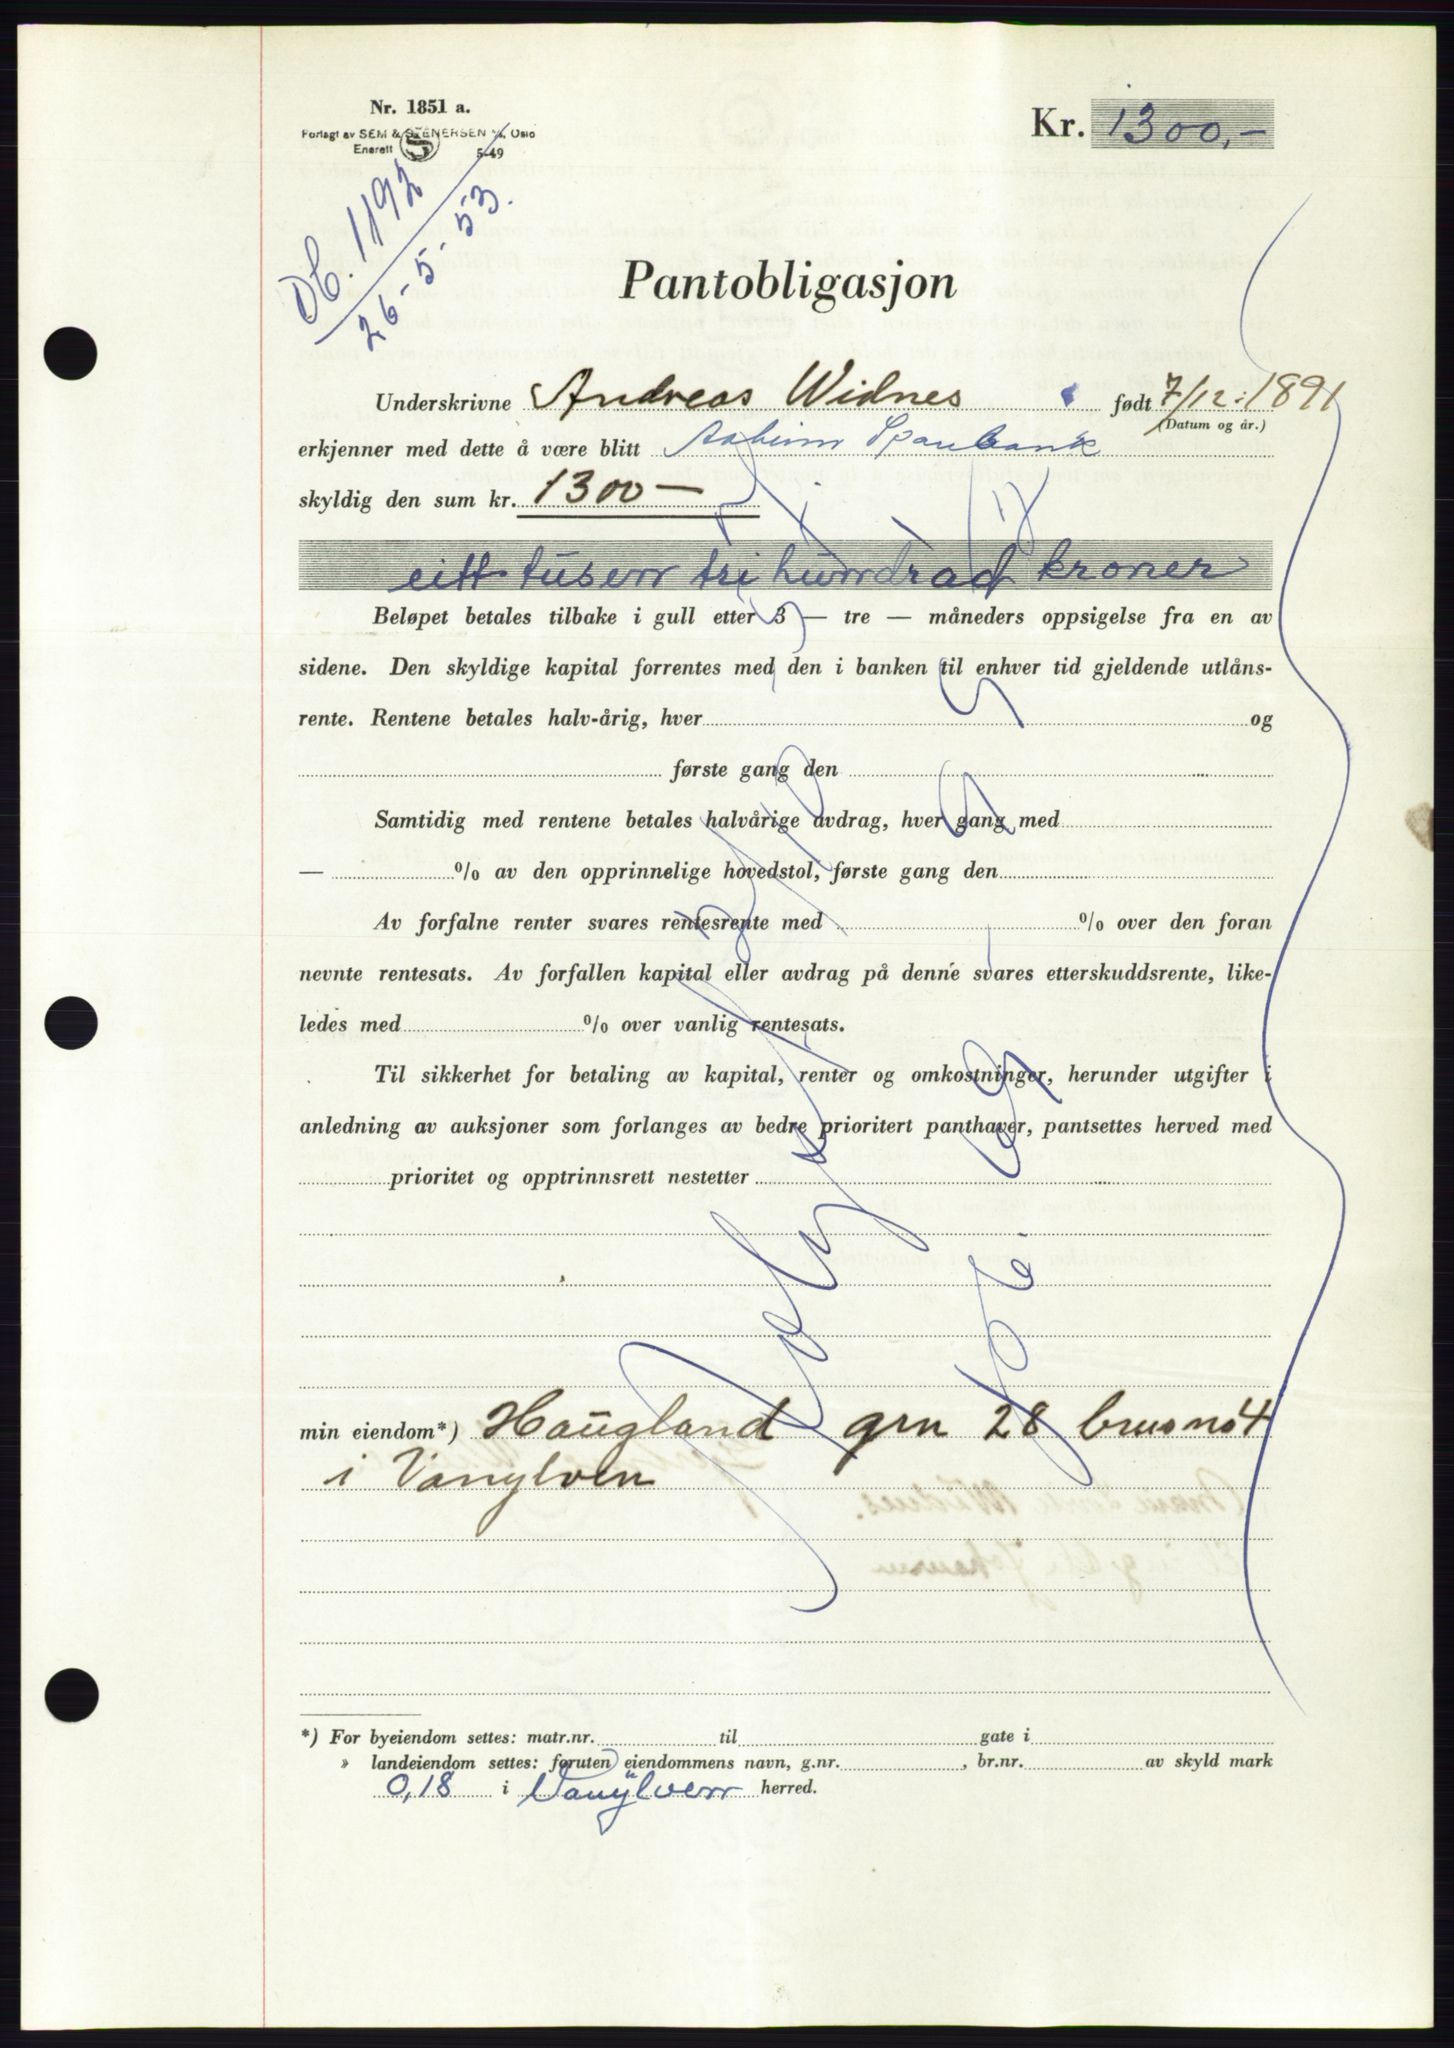 Nr. 1851 a.
Forlagt av SEM & STENERSEN A/s, Oslo
Enerett S 5-49
Kr. 1300,-
Db. 1192
26-5-53.
Pantobligasjon
Underskrivne Andreas Widnes født 7/12. 1891
(Datum og år.)
erkjenner med dette å være blitt Aaheim Sparebank
skyldig den sum kr. 1300 —
eitt tusen tri hundrad kroner
Beløpet betales tilbake i gull etter 3 — tre — måneders oppsigelse fra en av
sidene. Den skyldige kapital forrentes med den i banken til enhver tid gjeldende utlåns-
rente. Rentene betales halv-årig, hver og
første gang den
Samtidig med rentene betales halvårige avdrag, hver gang med
— % av den opprinnelige hovedstol, første gang den
Av forfalne renter svares rentesrente med % over den foran
nevnte rentesats. Av forfallen kapital eller avdrag på denne svares etterskuddsrente, like-
ledes med % over vanlig rentesats.
Til sikkerhet for betaling av kapital, renter og omkostninger, herunder utgifter i
anledning av auksjoner som forlanges av bedre prioritert panthaver, pantsettes herved med
prioritet og opptrinnsrett nestetter
min eiendom*) Haugland grn 28 brusno 4
i Vanylven
*) For byeiendom settes: matr.nr. til gate i
» landeiendom settes: foruten eiendommens navn, g.nr. , br.nr. av skyld mark
0,18 i Vanylven herred.